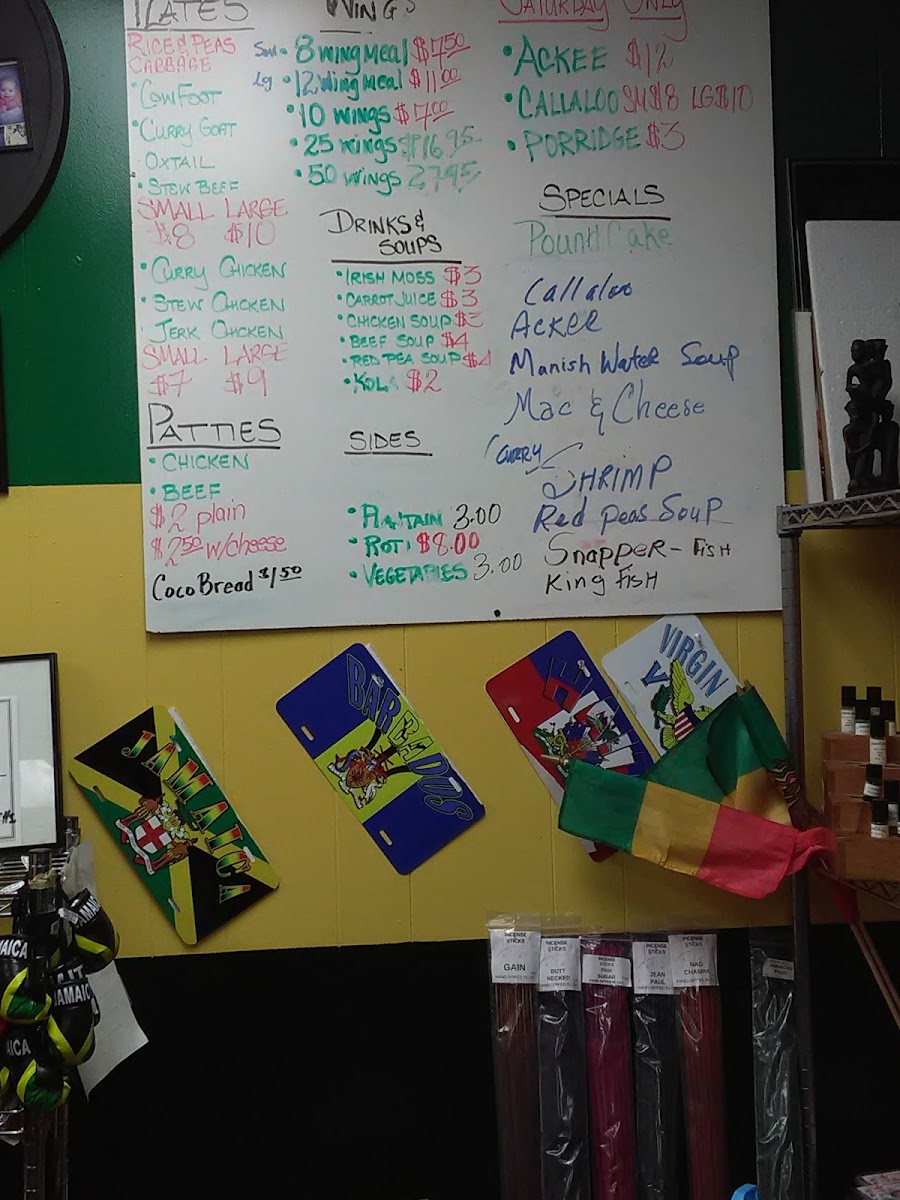 PLATES
RICE & PEAS
CABBAGE
• COWFOOT
• CURRY GOAT
OXTAIL
• STEW BEEF
SMALL LARGE
$8 $10
• CURRY CHICKEN
• STEW CHICKEN
JERK CHICKEN
SMALL LARGE
$7 $9
PATTIES
• CHICKEN
• BEEF
$2 plain
$2.50 w/cheese
Coco Bread $1.50
WINGS
Sm • 8 wing meal $7.50
Lg • 12 wing meal $11.00
• 10 wings $7.00
• 25 wings $16.95
• 50 wings 27.95
DRINKS &
SOUPS
• IRISH MOSS $3
• CARROT JUICE $3
• CHICKEN SOUP $3
• BEEF SOUP $4
• RED PEA SOUP $4
• KOLA $2
SIDES
• PLANTAIN 3.00
• ROTI $8.00
• VEGETABLES 3.00
SATURDAY ONLY
• ACKEE $12
• CALLALOO SM $8 LG $10
• PORRIDGE $3
SPECIALS
Pound Cake
Callaloo
ACKEE
Manish Water Soup
Mac & Cheese
CURRY
SHRIMP
Red Peas Soup
SNAPPER - FISH
King FISH
JAMAICA
BARBADOS
HAITI
VIRGIN
INCENSE
STICKS
GAIN
INCENSE
STICKS
BUTT
NECKED
INCENSE
STICKS
PINK
SUGAR
INCENSE
STICKS
JEAN
PAUL
INCENSE
STICKS
NAG
CHAMPA
JAMAICA